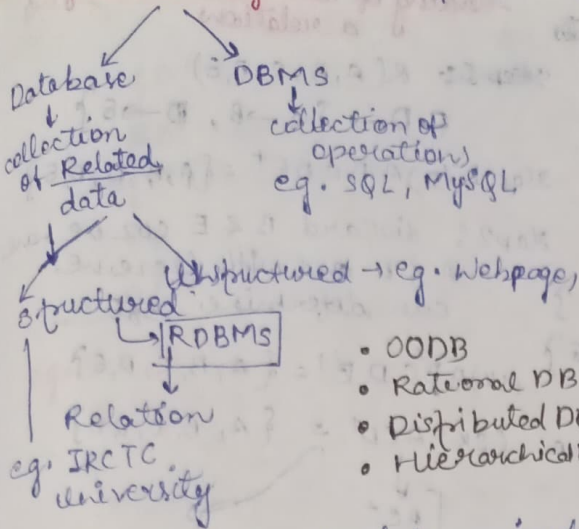 Database
↓
collection
of Related
data
DBMS
↓
collection of
operations
eg. SQL, MySQL
Structured
Unstructured → eg. Webpage,
↳ RDBMS
↓
Relation
eg. IRCTC
University
• OODB
• Rational DB
• Distributed D
• Hierarchical